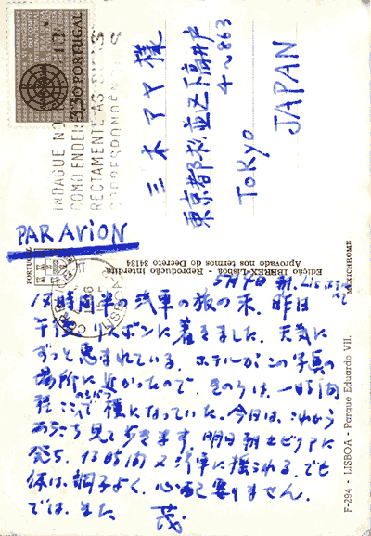 3$30 PORTUGAL
INDAGUE NO
COMO ENDE
RECTAMENTE AS
CORRESPONDÊN
三木アヤ様
東京都杉並区下高井戸
4~863
TOKYO
JAPAN
PAR AVION
PORTUGAL
LISBOA
Edição IBEREX-Lisboa - Reprodução Interdita
Aprovado nos termos do Decreto 34134
MEXICHROME
F-294 - LISBOA - Parque Eduardo VII.
18時間半の汽車の旅の末、昨日
午後 リスボンに着きました。天気に
ずっと恵まれている。ホテルがこの写真の
場所に近かったので、きのうは、一時間
程ここで横になっていた。今日は、これから
あちこち見て歩きます。明日朝セビリアに
発ち、13時間又汽車に揺られる。でも
体は調子よく、心配要りません。
ではまた 茂